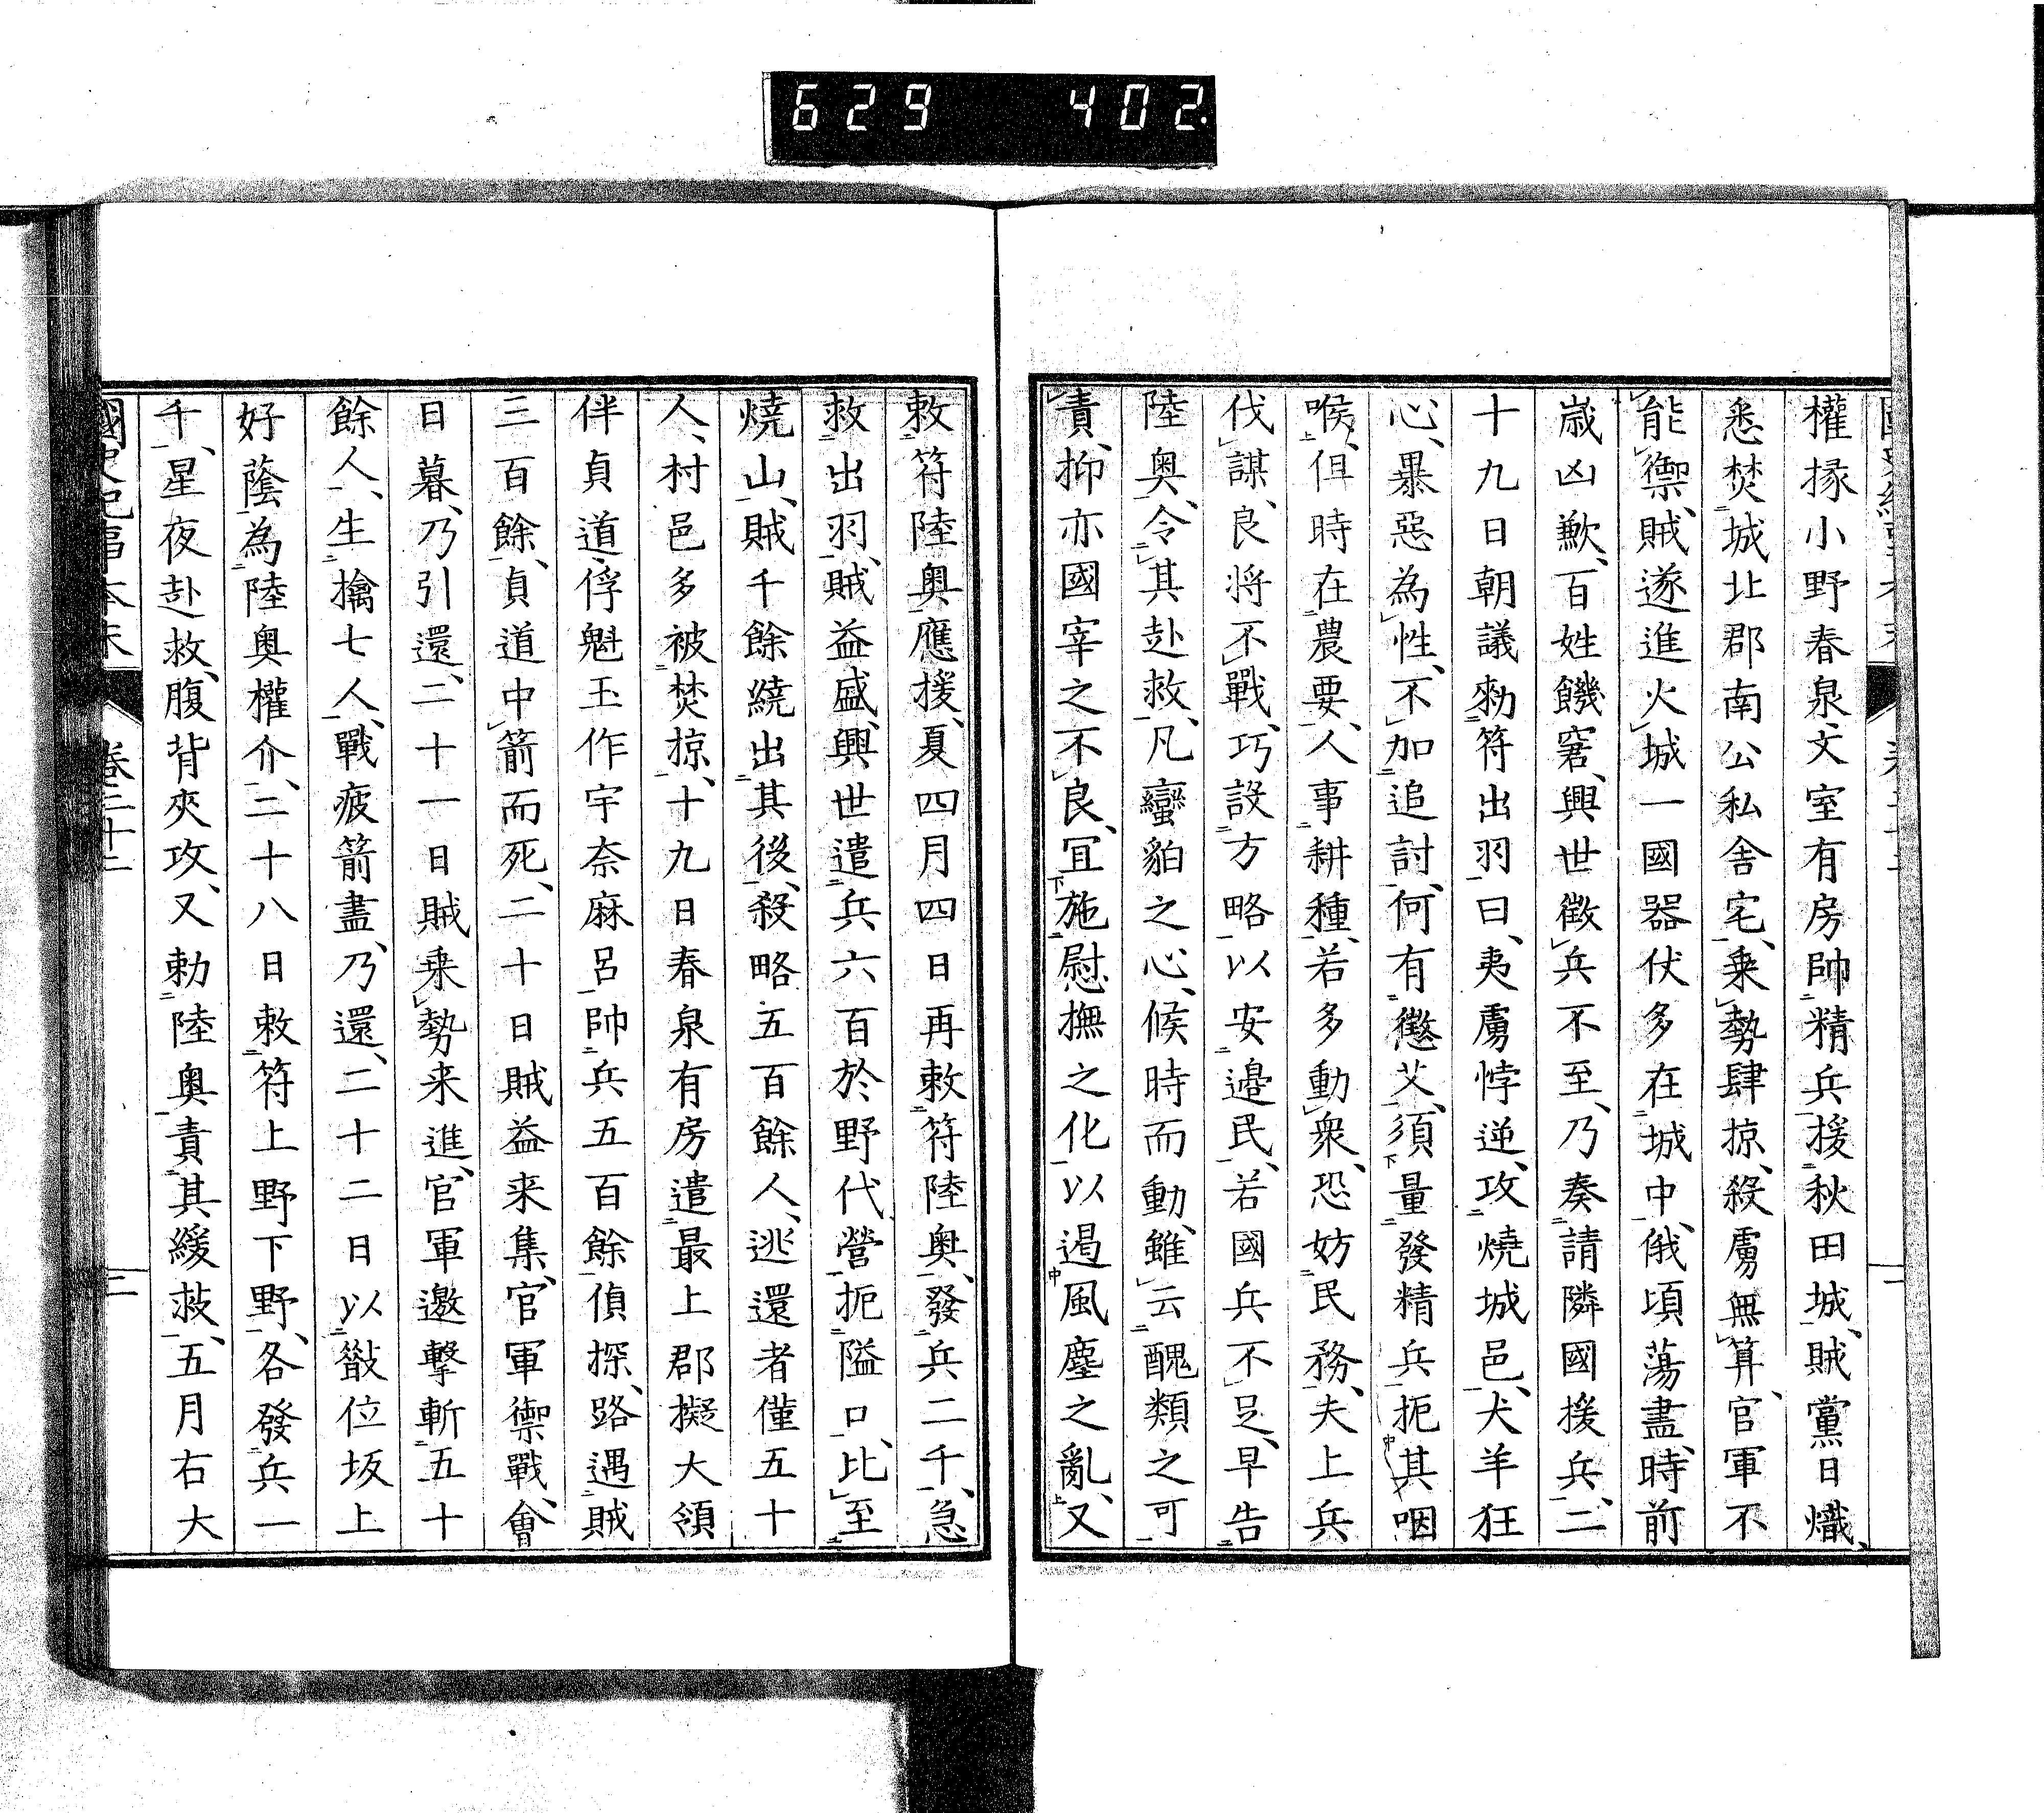 629 402.
權掾小野春泉、文室有房帥精兵援秋田城、賊黨日熾、
悉焚城北郡南公私舎宅、乗勢肆掠、殺虜無算、官軍不
能禦、賊遂進火城一國器仗多在城中、俄頃蕩盡、時前
歳凶歉、百姓饑窘、興世徴兵不至、乃奏請隣國援兵、二
十九日朝議勅符出羽曰、夷虜悖逆、攻燒城邑、犬羊狂
心、暴惡為性、不加追討、何有懲艾、須量發精兵扼其咽
喉、但時在農要、人事耕種、若多動衆、恐妨民務、夫上兵
伐謀、良将不戰、巧設方略以安邉民、若國兵不足、早告
陸奥、令其赴救、凡蠻貊之心、候時而動、雖云醜類之可
責、抑亦國宰之不良、冝施慰撫之化以遏風塵之亂、又
敕符陸奥應援、夏四月四日再敕符陸奥、發兵二千、急
救出羽、賊益盛、興世遣兵六百於野代營扼隘口、比至
燒山、賊千餘繞出其後、殺略五百餘人、逃還者僅五十
人、村邑多被焚掠、十九日春泉有房遣最上郡擬大領
伴貞道、俘魁玉作宇奈麻呂帥兵五百餘偵探、路遇賊
三百餘、貞道中箭而死、二十日賊益来集、官軍禦戰、會
日暮、乃引還、二十一日賊乗勢来進、官軍邀擊斬五十
餘人、生擒七人、戰疲箭盡、乃還、二十二日以散位坂上
好蔭為陸奥權介、二十八日敕符上野下野、各發兵一
千、星夜赴救、腹背夾攻、又勅陸奥責其緩救、五月右大
國史紀事本末 卷三十二 二